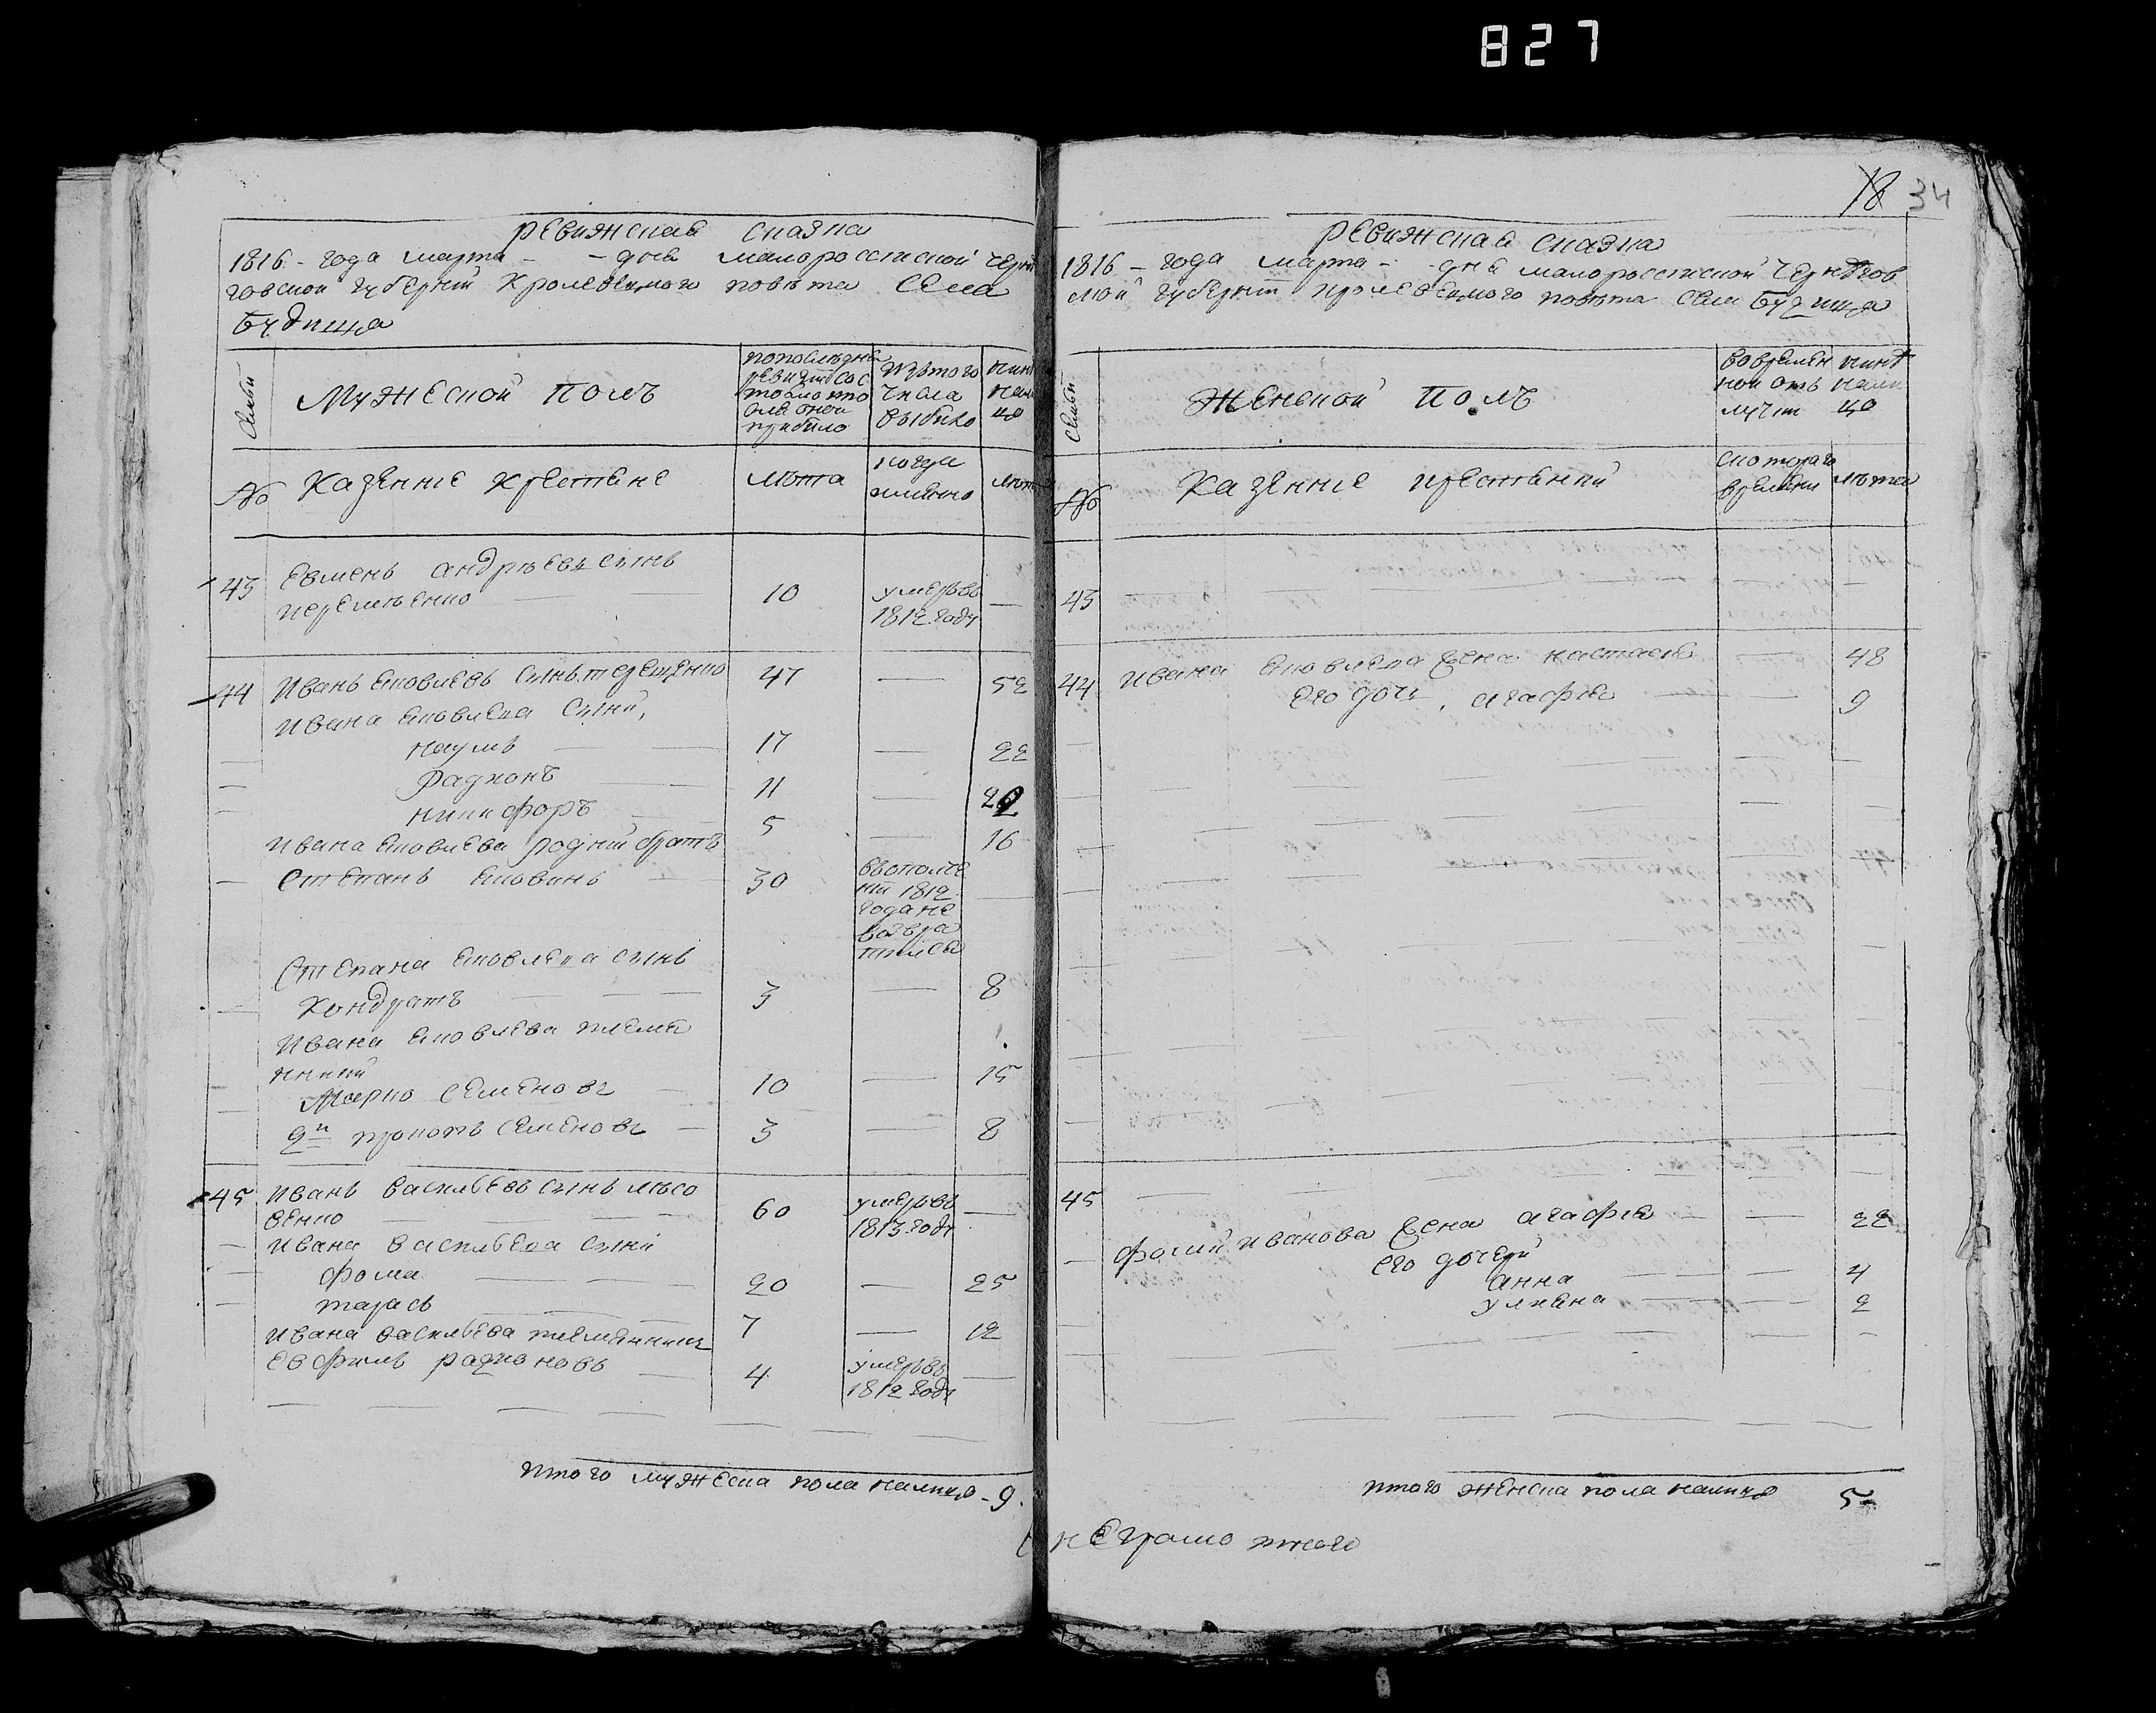 827
18 34
Ревижская сказка
1816 - года марта - - дня малоросстиской черни
говской губерний Кролевецкого повѣта Села
Будища
Семьи
Мужеской полъ
попоследне
ревизіи сос
тояло и по
сле оной
прибыло
Изътого
числа
выбило
нине
нали
цо
№
Казенние Крестяне
Лѣта
когда
имянно
Лѣта
43 Евмень андрѣевъ синъ
Яременко 10 умеръвъ
1812 году
44 Иванъ яковлевъ синъ терещенко 47 52
Ивана яковлева сини,
наумъ 17 22
Радионъ 11
никифоръ 5
16
Ивана яковлева родний братъ
Степанъ яковинъ 30 въополче
ніи 1812
года не
возвра
тился
Степана яковлева синъ
Кондратъ 3 8
Ивана яковлева племя
нники
Марко Семеновъ 10 15
2й прокопъ Семеновъ 3 8
45 Иванъ васильевъ синъ лѣсо
венко 60 умеръвъ
1813 году
Ивана васильева сини
фома 20 25
тарасъ 7 12
Ивана васильева племянникъ
Евфимъ радионовъ 4 умеръвъ
1812 году
итого мужеска пола налицо - 9.
Ревижская сказка
1816 - года марта - дня малоросстиской Чернѣгов
ской губерніи кролевецкого повѣта села Будища
Семьи
Женской полъ
вовремен
ной отъ
лучки
нинѣ
нали
цо
№
Казенние крестянки
скоторого
времени
лѣта
43
44 Ивана яковлева жена настася 48
его дочь, агафия 9
45
фоми иванова жена агафия 22
его дочери
анна 4
улияна 2
итого женска пола налицо 5
неграмотного